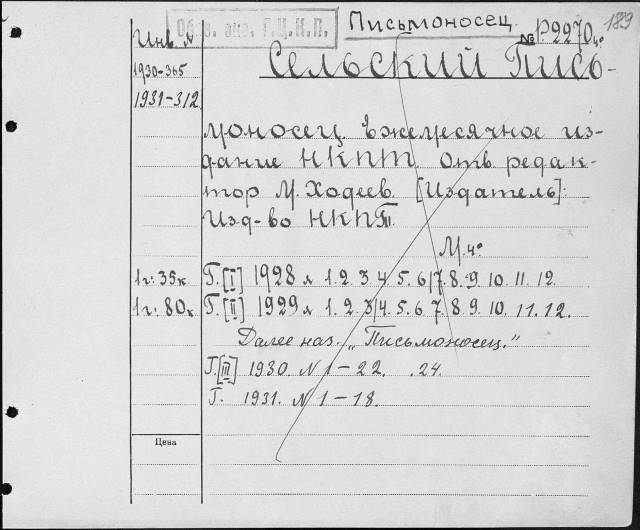 Обяз. экз. Г.Ц.К.П.
Письмоносец.
189
Инв. N
№ Р.2270 4°
1930-365
Сельский Пись-
1931-312
моносец. Ежемесячное из-
дание НКПТ. Отв. редак-
тор М. Ходеев. [Издатель]:
Изд-во НКПТ.
М. 4°
1г: 35к Г. [I] 1928 л 1. 2. 3 4. 5. 6 7. 8. 9. 10. 11. 12.
1г: 80к Г. [II] 1929 л 1. 2. 3 4. 5. 6. 7. 8. 9. 10. 11. 12.
Далее наз. „Письмоносец."
Г. [III] 1930. N 1-22. .24.
Г. 1931. N 1-18.
Цена